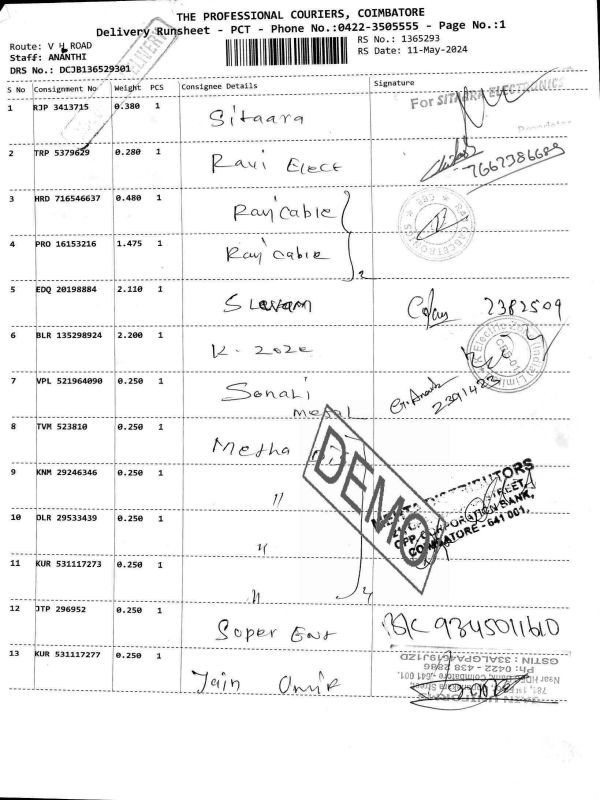 THE PROFESSIONAL COURIERS, COIMBATORE
Delivery Runsheet - PCT - Phone No.:0422-3505555 - Page No.:1
Route: V H ROAD
RS No.: 1365293
Staff: ANANTHI
RS Date: 11-May-2024
DRS No.: DCJB136529301
DELIVERY
S No Consignment No Weight PCS Consignee Details Signature
1 RJP 3413715 0.380 1 Sitaara
For SITAARA ELECTRONICS
2 TRP 5379629 0.280 1 Ravi Elect
7667386689
3 HRD 716546637 0.480 1 Ravi Cable
4 PRO 16153216 1.475 1 Ravi Cable
2
5 EDQ 20198884 2.110 1 2382509
6 BLR 135298924 2.200 1 K. Zoze
7 VPL 521964090 0.250 1 Sonali
Metal
G. Anand
8 TVM 523810 0.250 1 Metha
DEMO
9 KNM 29246346 0.250 1 "
DISTRIBUTORS
STREET,
OPP. CORPORATION BANK,
COIMBATORE - 641 001.
10 DLR 29533439 0.250 1 "
11 KUR 531117273 0.250 1 "
4
12 JTP 296952 0.250 1 Soper Ent 9345011610
13 KUR 531117277 0.250 1 Jain
GSTIN : 33ALGPA9461J1ZD
Coimbatore - 641 001.